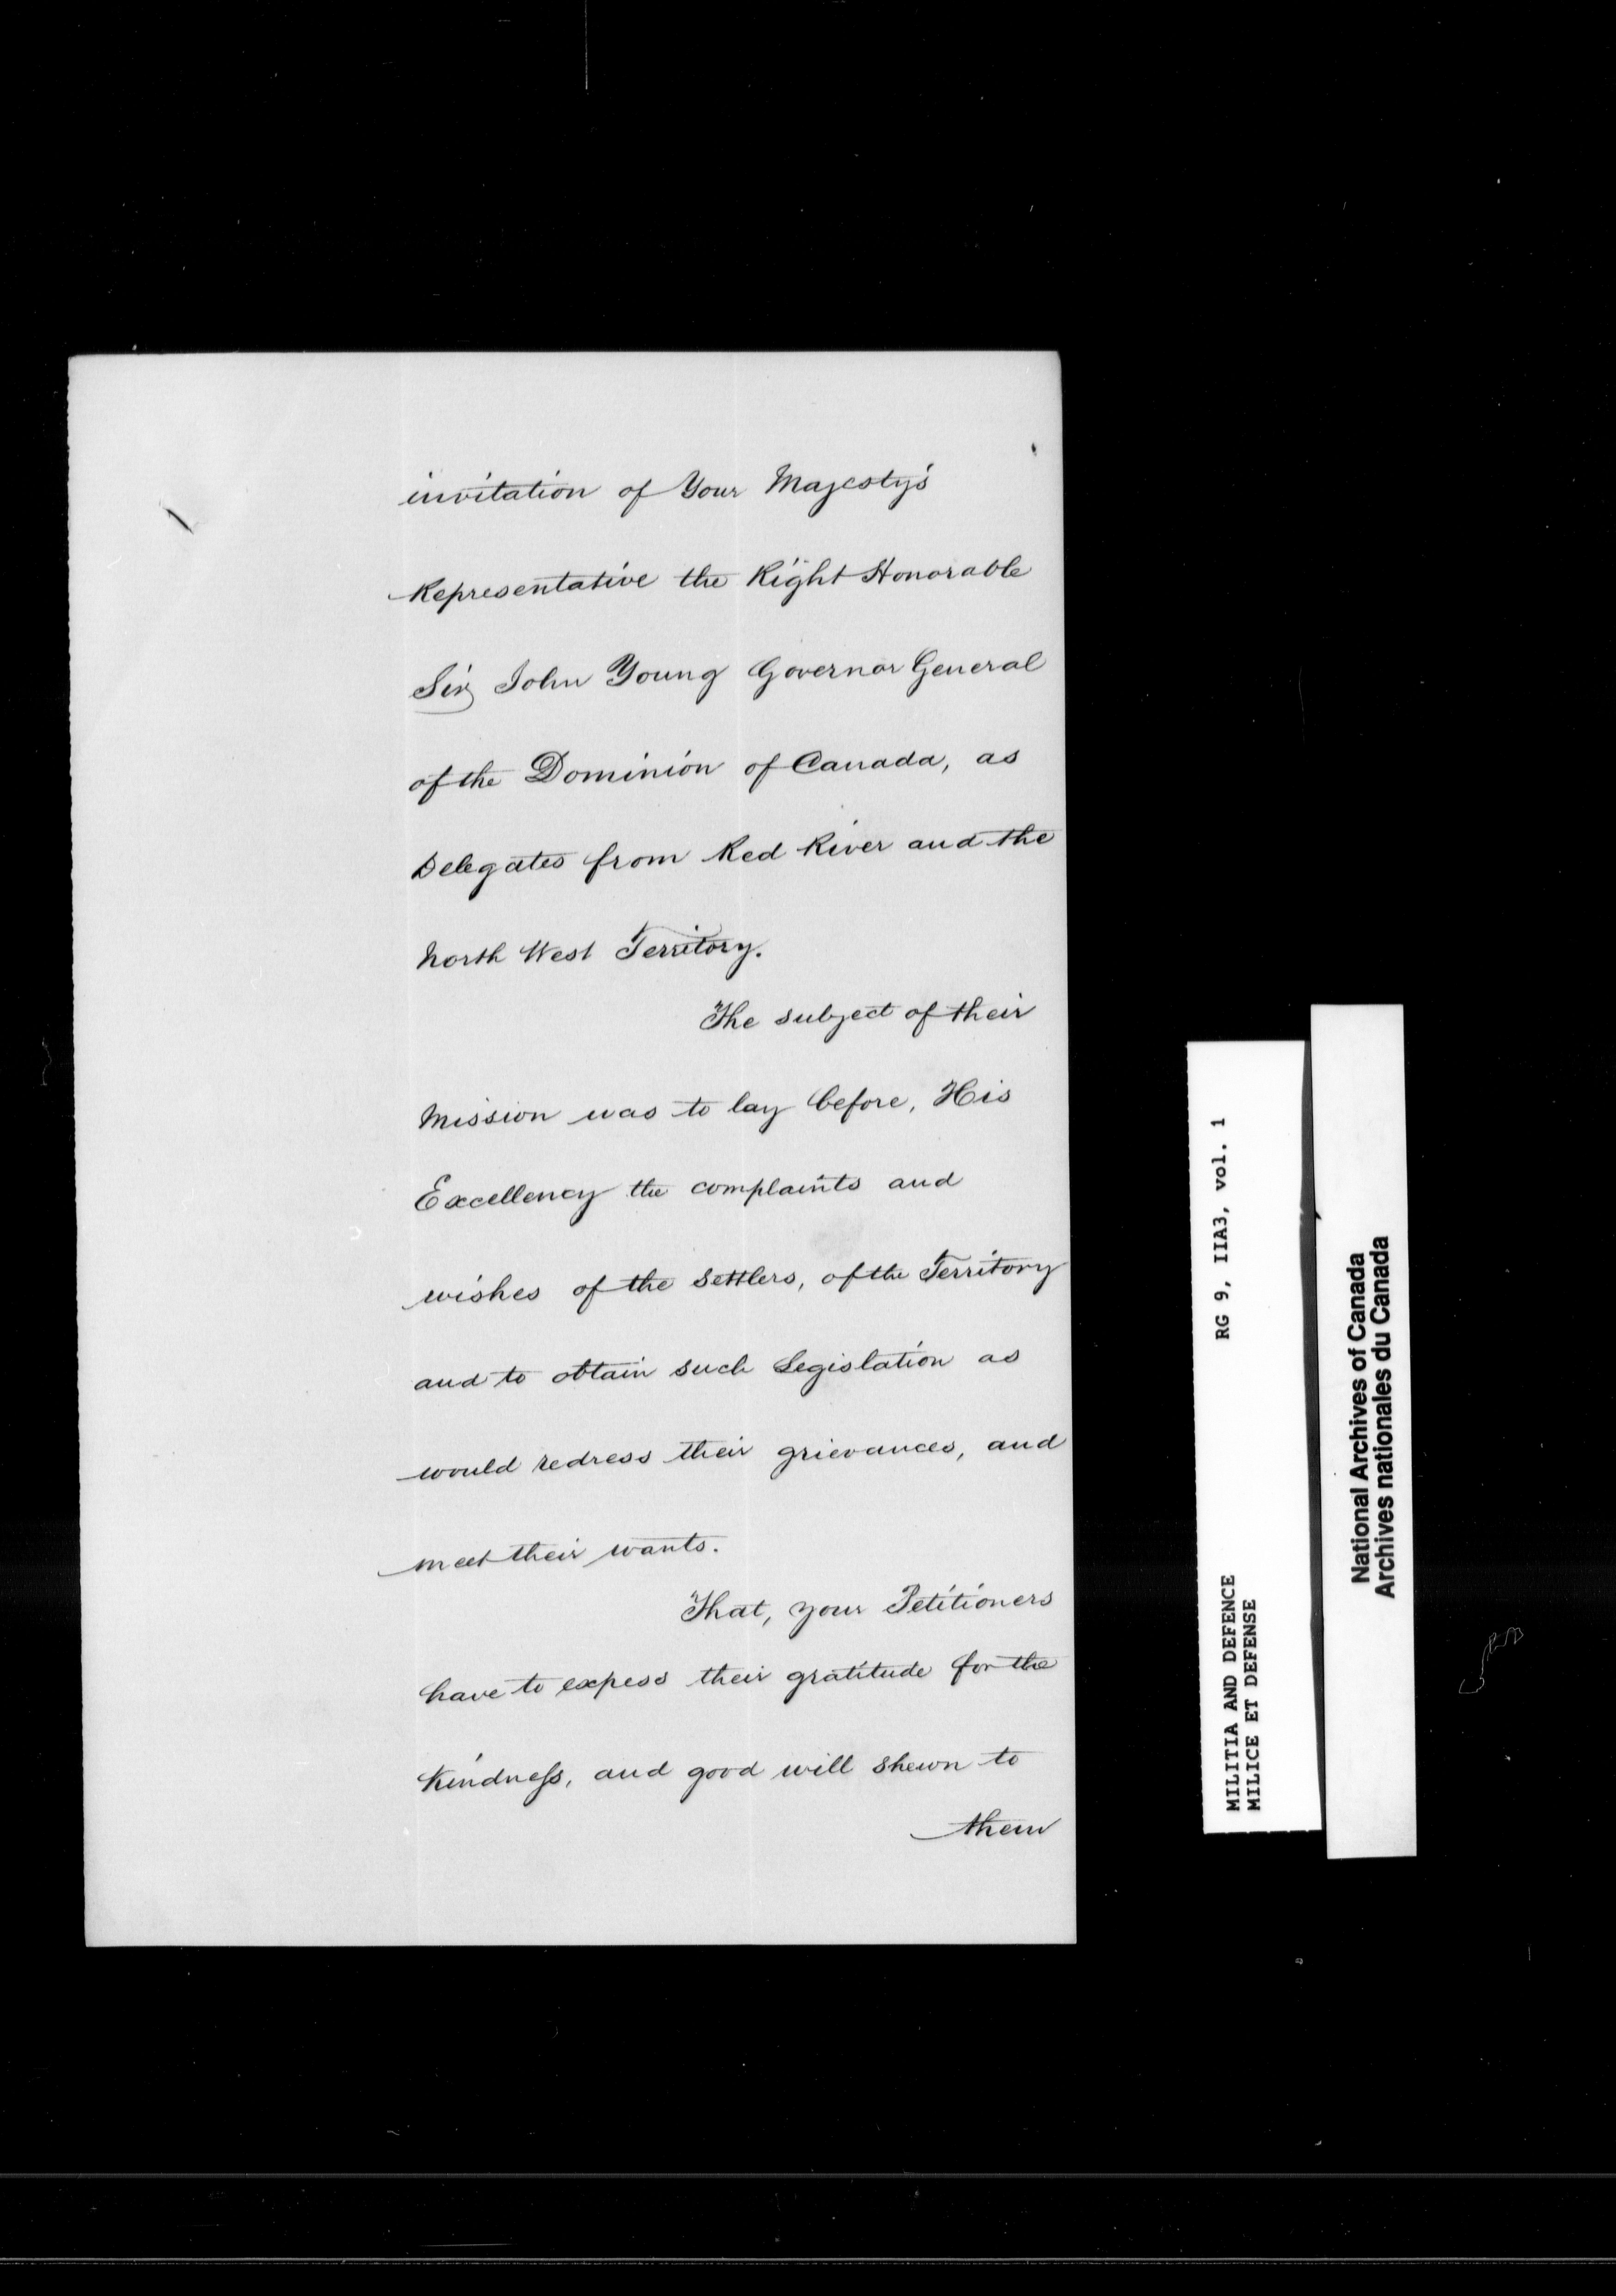 invitation of Your Majesty's
Representative the Right Honorable
Sir John Young Governor General
of the Dominion of Canada, as
Delegates from Red River and the
North West Territory.
The subject of their
Mission was to lay before, His
Excellency the complaints and
wishes of the Settlers, of the Territory
and to obtain such Legislation as
would redress their grievances, and
meet their wants.
That, your Petitioners
have to expess their gratitude for the
Kindness, and good will shewn to
them
RG 9, IIA3, vol. 1
MILITIA AND DEFENCE
MILICE ET DEFENSE
National Archives of Canada
Archives nationales du Canada